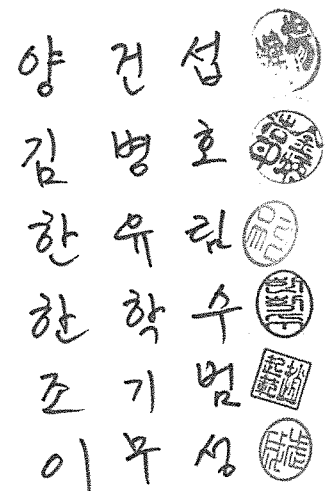 양 건 섭
김 병 호
한 유 림
한 학 수
조 기 범
이 무 성